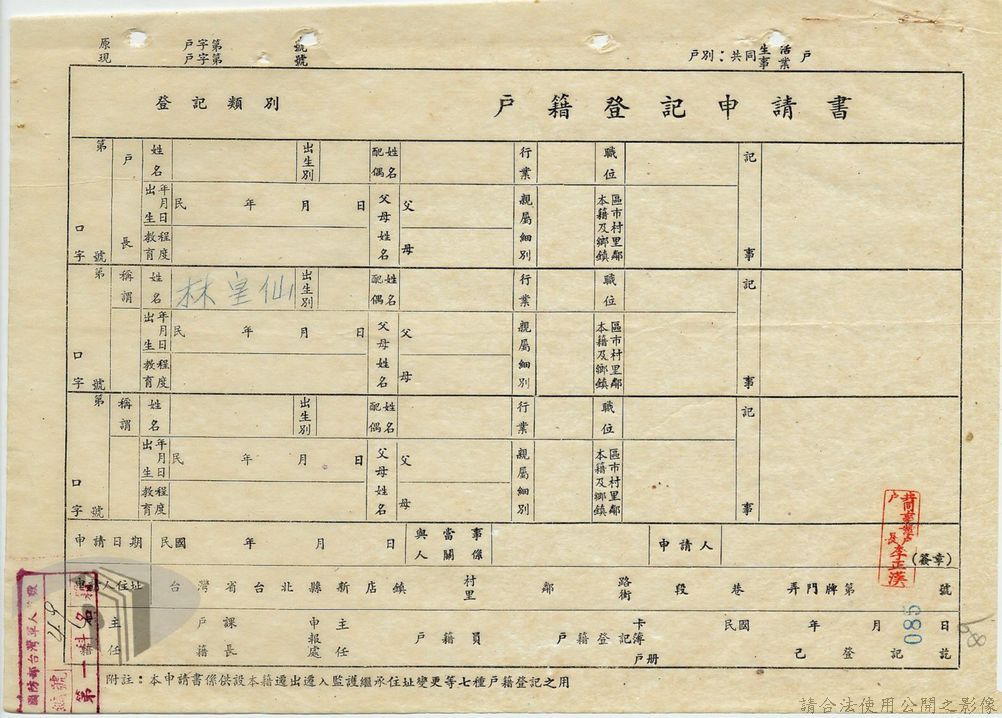 原 戶字第 號
現 戶字第 號
戶別：共同生活戶
事業
登記類別 戶籍登記申請書
第 口 字 號
戶長
姓名
出生別
配偶姓名
行業
職位
記事
出生年月日 民 年 月 日
父母姓名 父 母
親屬細別
本籍及鄉鎮區市村里鄰
教育程度
第 口 字 號
稱謂
姓名 林皇仙
出生別
配偶姓名
行業
職位
記事
出生年月日 民 年 月 日
父母姓名 父 母
親屬細別
本籍及鄉鎮區市村里鄰
教育程度
第 口 字 號
稱謂
姓名
出生別
配偶姓名
行業
職位
記事
出生年月日 民 年 月 日
父母姓名 父 母
親屬細別
本籍及鄉鎮區市村里鄰
教育程度
共同事業戶
戶長 李正漢
申請日期 民國 年 月 日 與當事人關係 申請人 (簽章)
人住址 台灣省台北縣新店鎮 村里 鄰 路街 段 巷 弄門牌第 號
主任 戶籍課長 申報處主任 戶籍員 戶籍登記卡簿戶冊 民國 年 月 日已登記訖
085
68
國防部台灣軍人
編號
第一科
附註：本申請書係供設本籍遷出遷入監護繼承住址變更等七種戶籍登記之用
請合法使用公開之影像